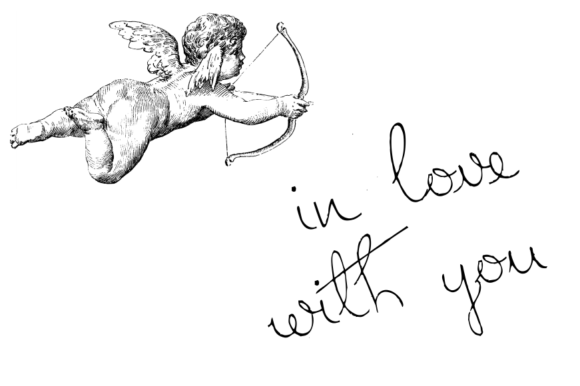 in love
with you